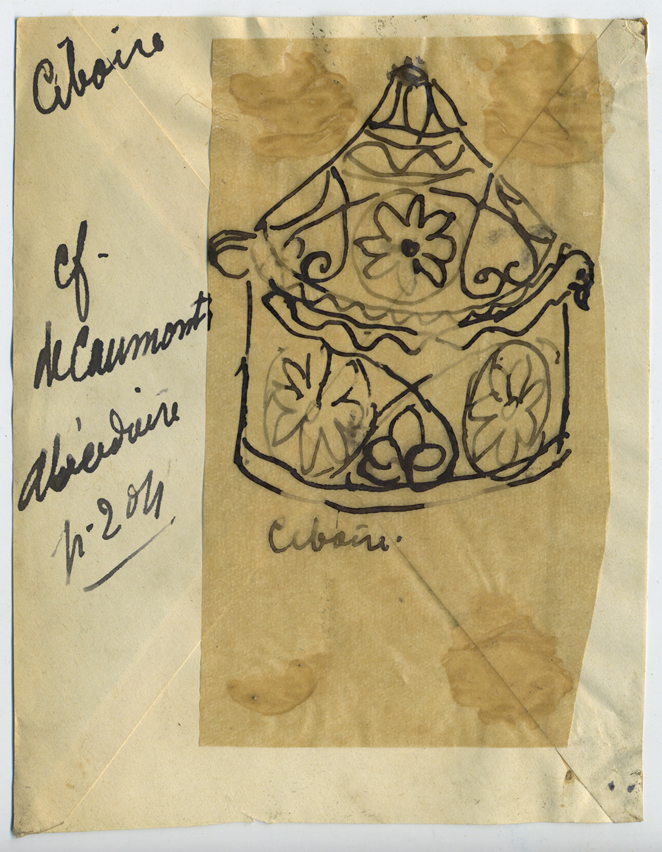 Ciboire
cf.
de Caumont
Abécédaire
p. 204
Ciboire.